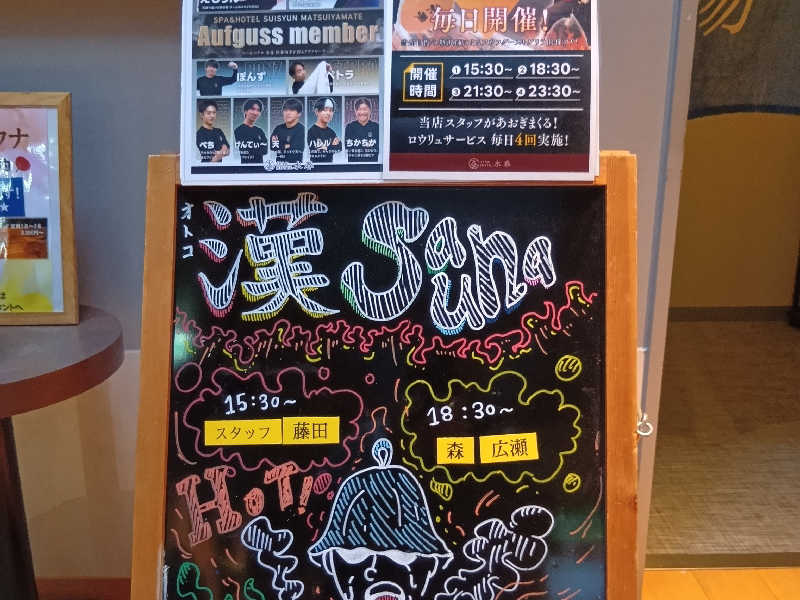 SPA&HOTEL SUISYUN MATSUIYAMATE
Aufguss member
ぽんず
ペトラ
ぺち
げんてぃ〜
天
ハレル
ちかちか
毎日開催!
開催時間
①15:30~ ②18:30~
③21:30~ ④23:30~
当店スタッフがあおぎまくる!
ロウリュサービス 毎日4回実施!
水春
オトコ
漢 Sauna
15:30~
スタッフ 藤田
18:30~
森 広瀬
HOT!